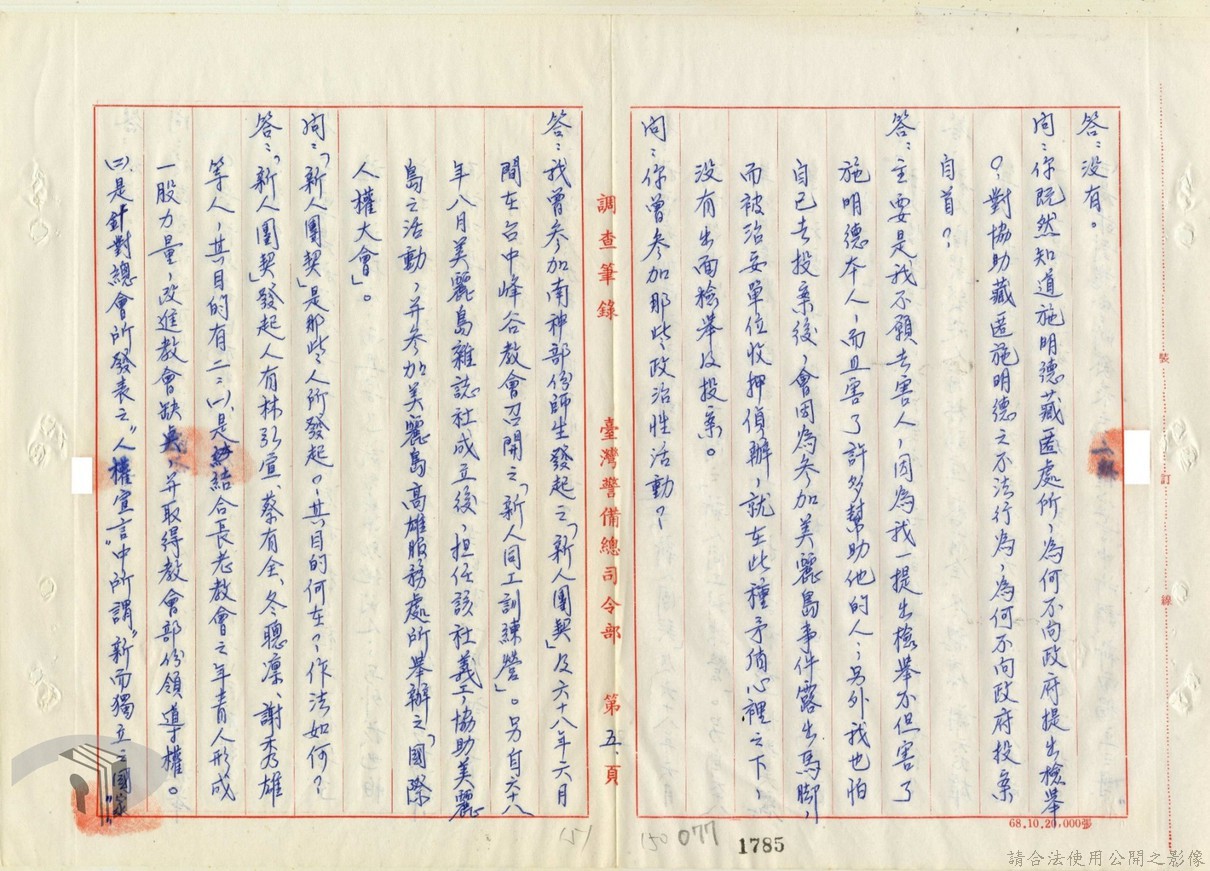 答：没有。
問：你既然知道施明德藏匿處所，為何不向政府提出檢舉
？對協助藏匿施明德之不法行為，為何不向政府投案
自首？
答：主要是我不願去害人，因為我一提出檢舉不但害了
施明德本人，而且害了許多幫助他的人；另外我也怕
自己去投案後，會因為參加美麗島事件露出馬脚，
而被治安單位收押偵辦，就在此種矛循心裡之下，
没有出面檢舉及投案。
問：你曾參加那些政治性活動？
調查筆錄 臺灣警備總司令部 第五頁
答：我曾參加南神部份師生發起之「新人團契」及六十八年六月
間在台中峰谷教會召開之「新人同工訓練營」。另自六十八
年八月美麗島雜誌社成立後，担任該社義工，協助美麗
島之活動，并參加美麗島高雄服務處所舉辦之「國際
人權大會」。
問：「新人團契」是那些人所發起？其目的何在？作法如何？
答：「新人團契」發起人有林弘宣、蔡有全、冬聰凜、謝秀雄
等人，其目的有二：㈠、是結合長老教會之年青人形成
一股力量，改進教會缺点，并取得教會部份領導權。
㈡、是針對總會所發表之"人權宣言"中所謂"新而獨立之國家"
裝
訂
線
68.10.20,000張
(5)
150
077
1785
請合法使用公開之影像